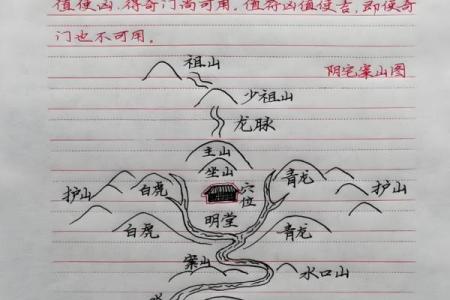 值使凶.得奇门尚可用.值符凶值使吉,即使奇
门也不可用.
阴宅案山图
祖山
少祖山
龙脉
主山
坐山
护山
白虎
穴位
青龙
护山
白虎
明堂
青龙
案山
水口山